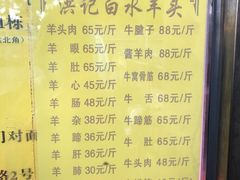 洪记白水羊头
栋
东北角)
羊头肉 65元/斤
羊 眼 65元/斤
羊 肚 65元/斤
羊 心 45元/斤
羊 肠 48元/斤
羊 杂 38元/斤
羊 蹄 36元/斤
羊 肝 36元/斤
羊 肺 30元/斤
牛腱子 88元/斤
酱羊肉 88元/斤
牛窝骨筋 68元/斤
牛 舌 68元/斤
牛蹄筋 65元/斤
牛 肚 65元/斤
牛头肉 48元/斤
门对面
路2号